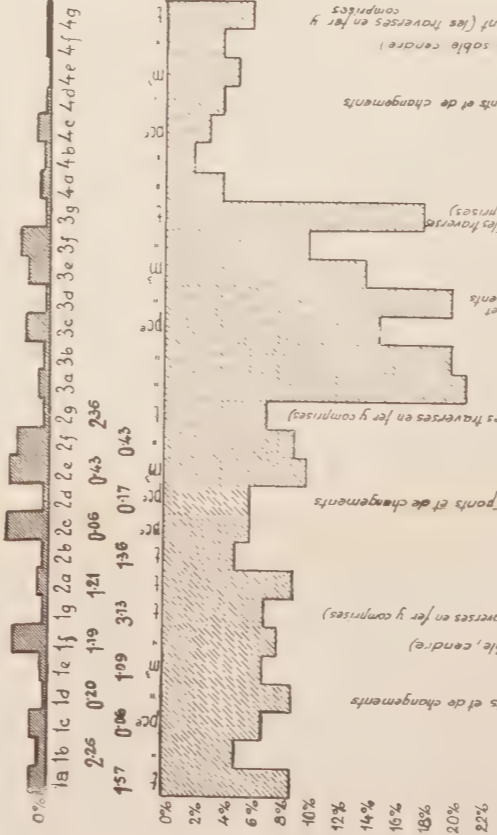 0%
1a 1b 1c 1d 1e 1f 1g 2a 2b 2c 2d 2e 2f 2g 3a 3b 3c 3d 3e 3f 3g 4a 4b 4c 4d 4e 4f 4g
2·26 0·20 1·19 1·21 0·06 0·43 2·36
1·57 0·06 1·09 3·13 1·36 0·17 0·43
0%
2%
4%
6%
8%
10%
12%
14%
16%
18%
20%
22%
s et de changements
ble, cendre)
verses en fer y comprises)
(ponts et de changements
es traverses en fer y comprises)
et
ents
(les traverses
prises)
nts et de changements
sable cendre)
nt (les traverses en fer y
comprises